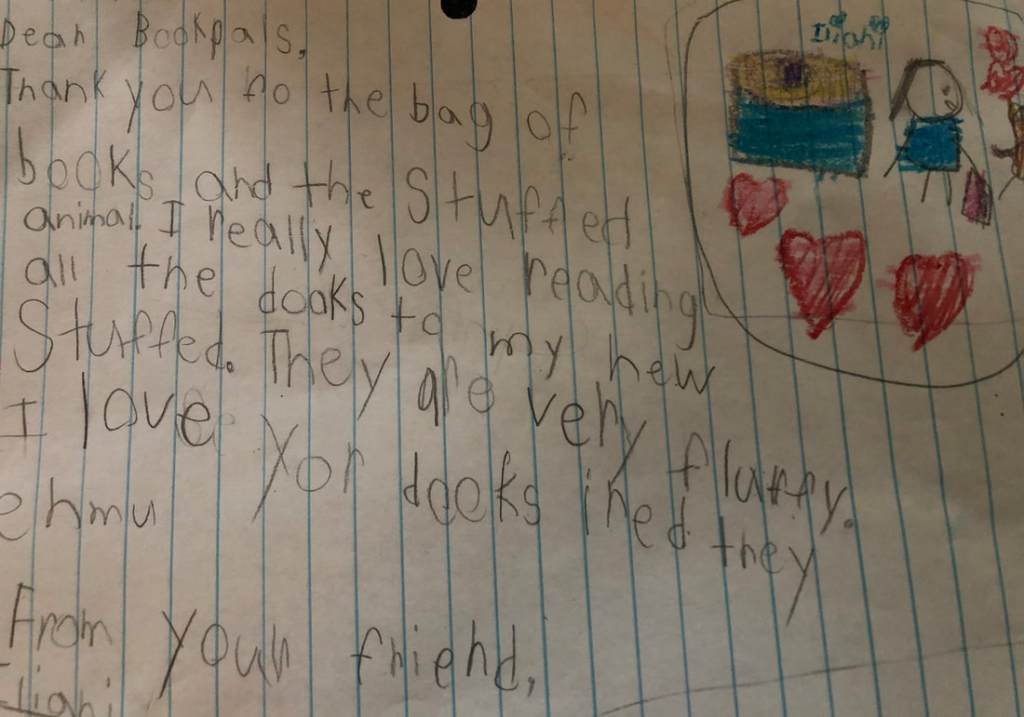 Dear Bookpals,
Thank you fo the bag of
books and the Stuffed
animal. I really love reading
all the dooks to my new
Stuffed. They are very fluffy.
I love yor dooks ined they
ehmu
From your friend,
Iliahi
Iliahi